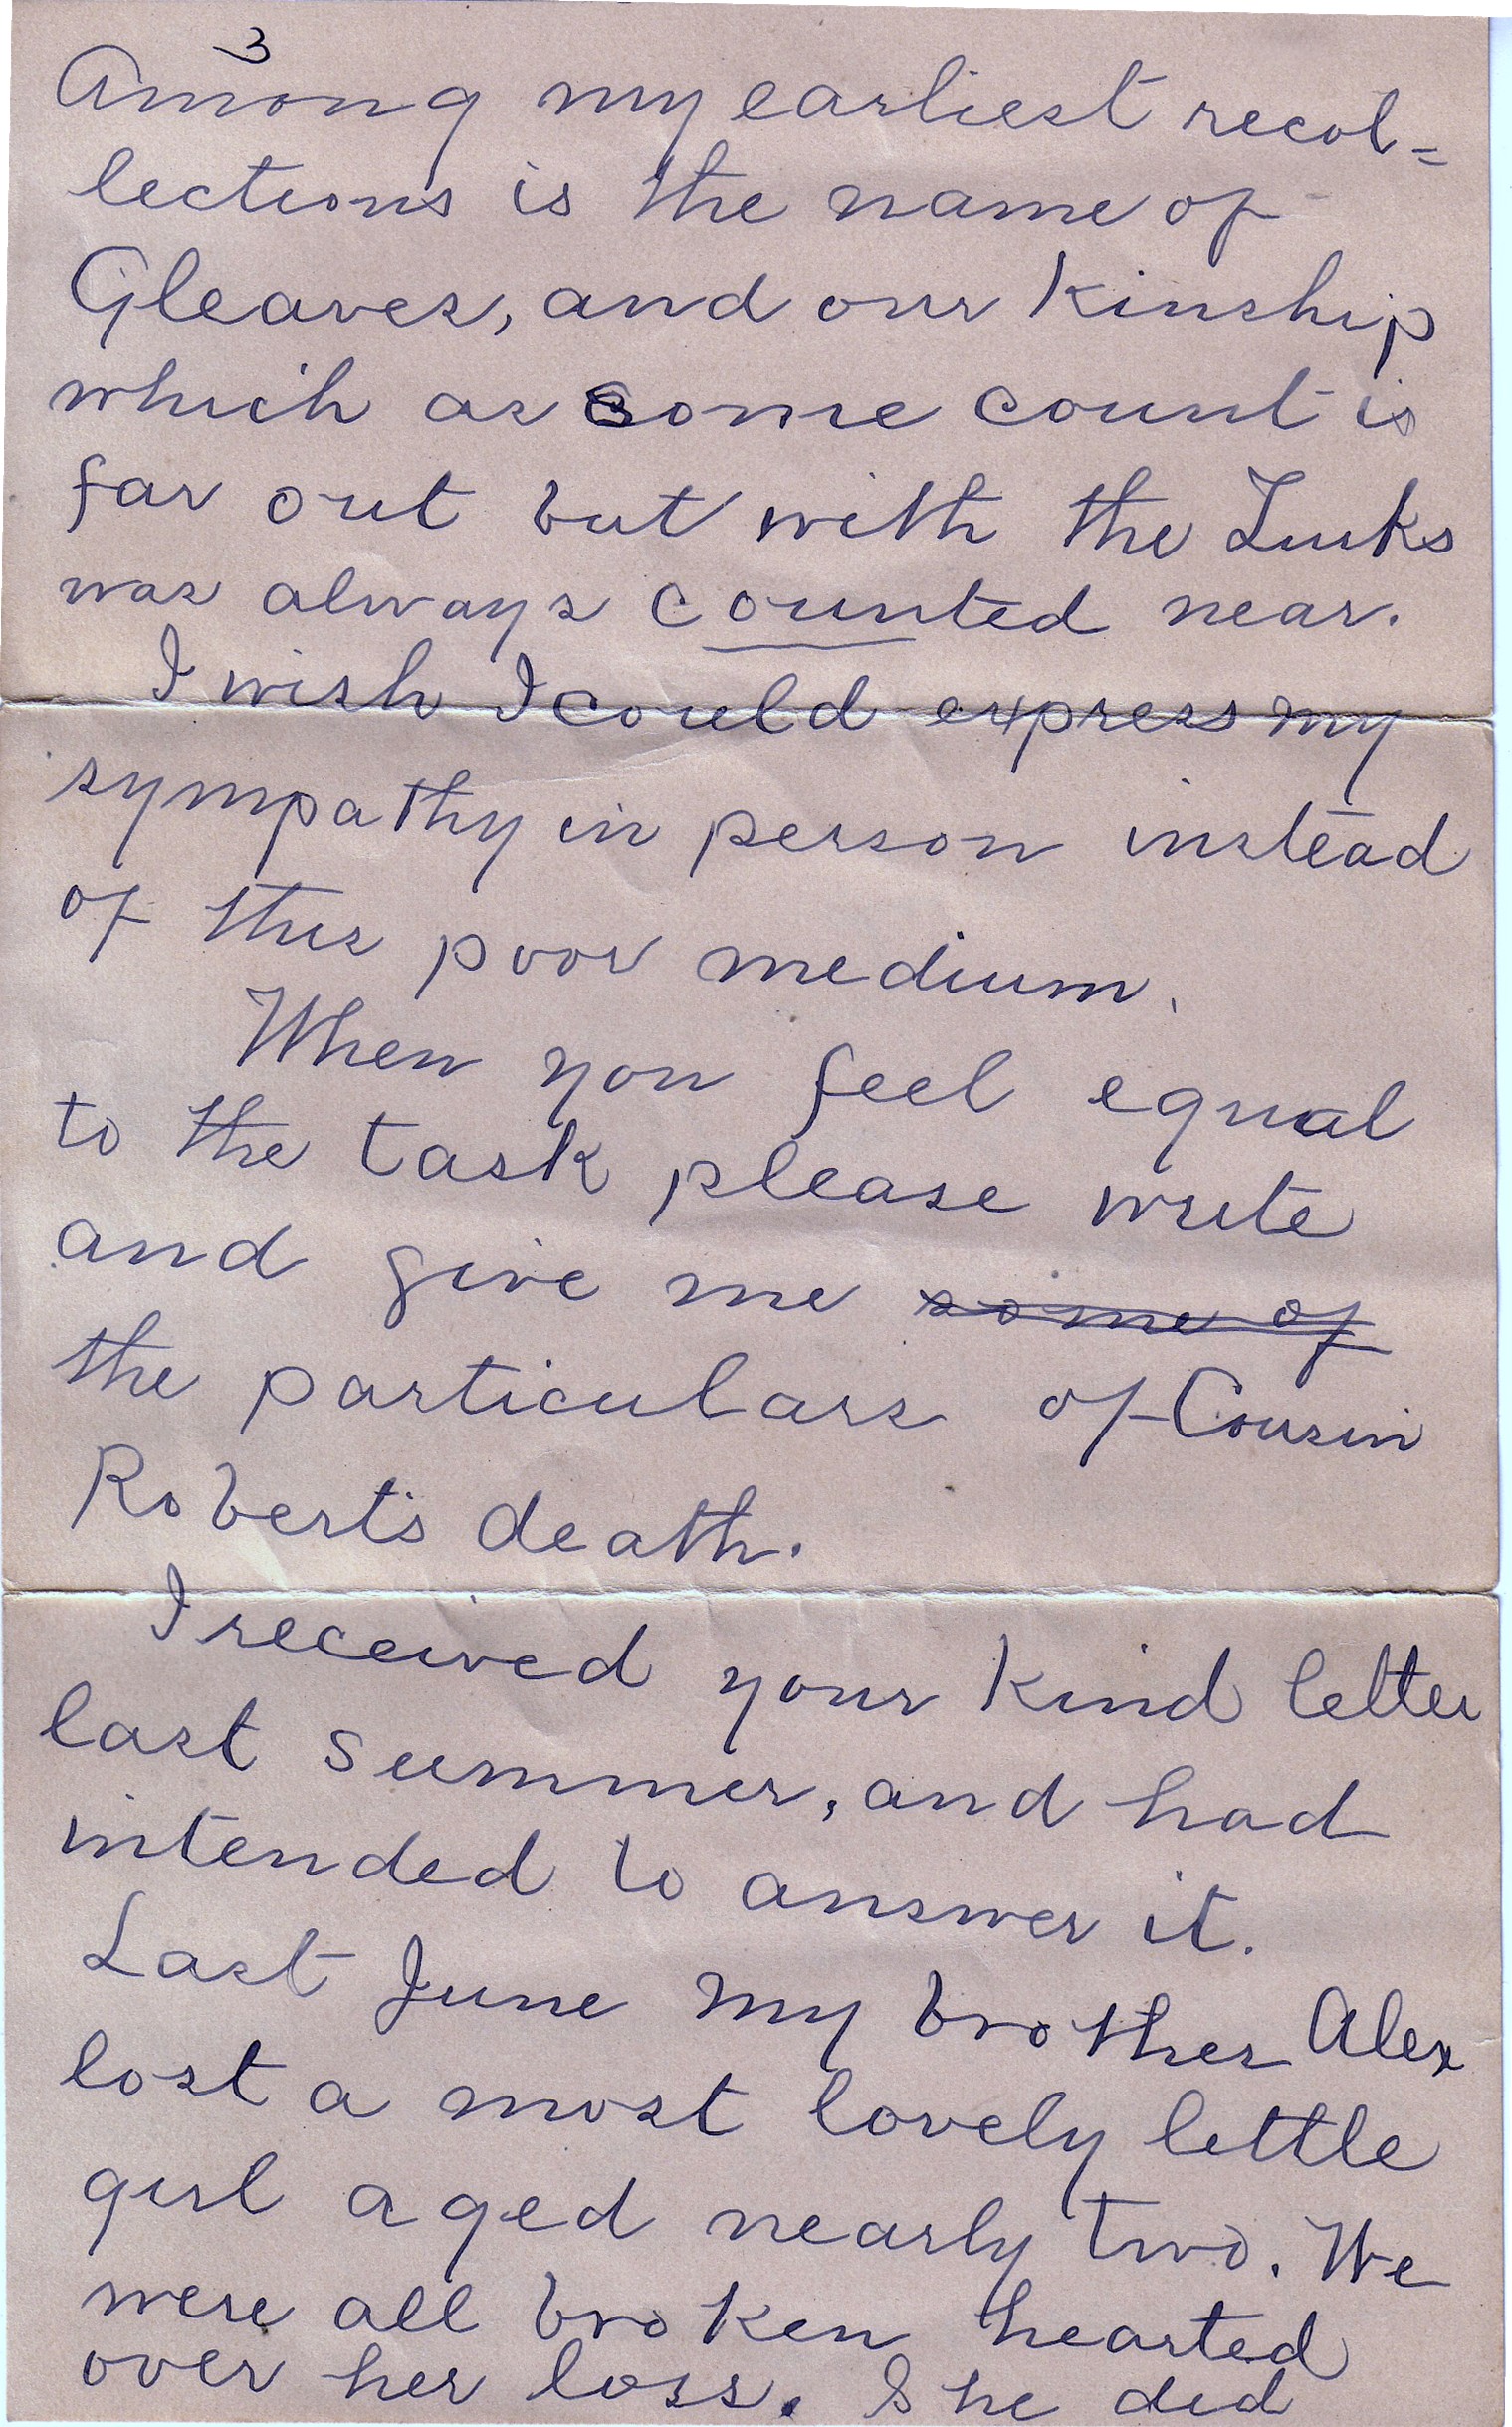 3
Among my earliest recol=
lections is the name of
Gleaves, and our kinship
which as some count is
far out but with the Turks
was always counted near.
I wish I could express my
sympathy in person instead
of this poor medium.
When you feel equal
to the task please write
and give me some of
the particulars of Cousin
Robert's death.
I received your kind letter
last summer, and had
intended to answer it.
Last June my brother Alex
lost a most lovely little
girl aged nearly two. We
were all broken hearted
over her loss. She did